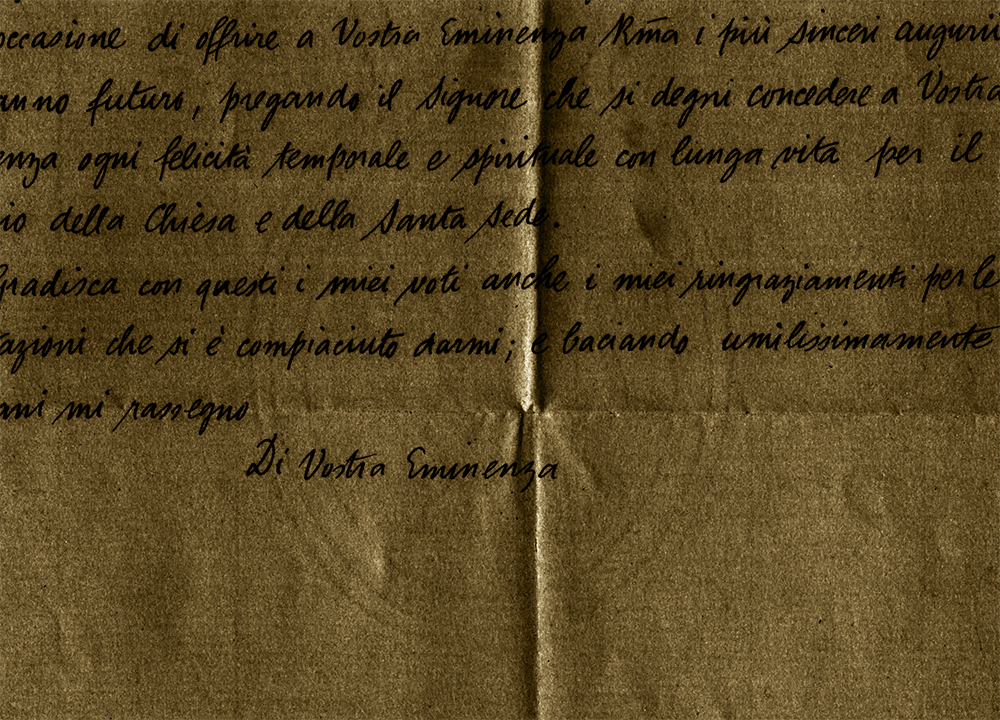 occasione di offrire a Vostra Eminenza Rma i più sinceri augurii
anno futuro, pregando il Signore che si degni concedere a Vostra
enza ogni felicità temporale e spirituale con lunga vita per il
io della Chièsa e della Santa Sede.
Gradisca con questi i miei voti anche i miei ringraziamenti per le
tazioni che si è compiaciuto darmi; e baciando umilissimamente
ani mi rassegno
Di Vostra Eminenza